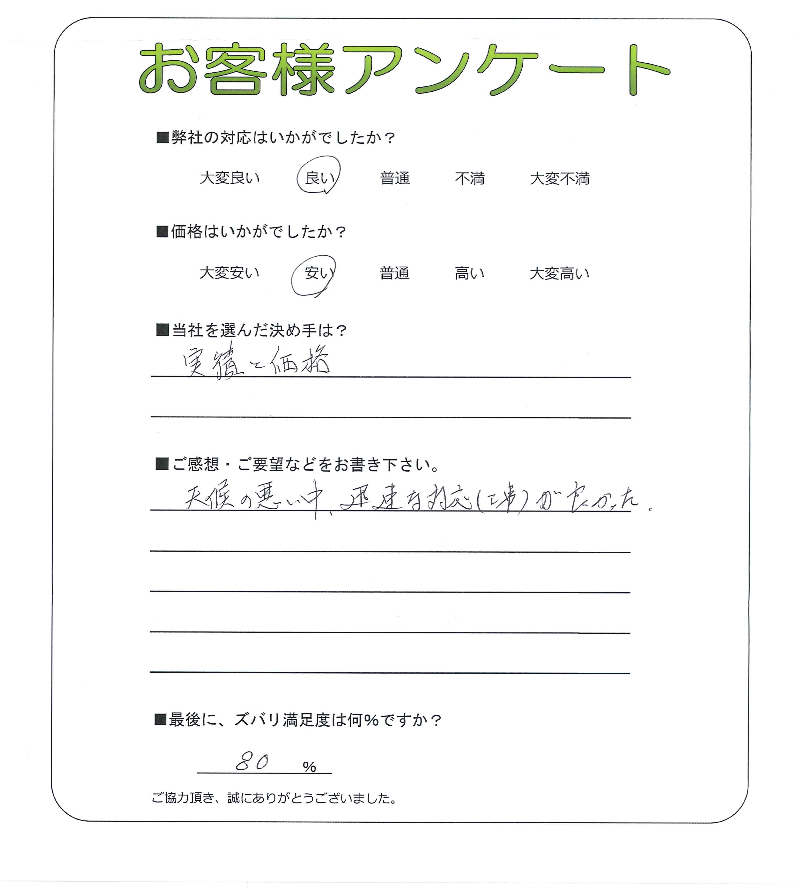 お客様アンケート
■弊社の対応はいかがでしたか？
大変良い 良い 普通 不満 大変不満
■価格はいかがでしたか？
大変安い 安い 普通 高い 大変高い
■当社を選んだ決め手は？
実績と価格
■ご感想・ご要望などをお書き下さい。
天候の悪い中、迅速な対応(工事)が良かった。
■最後に、ズバリ満足度は何%ですか？
80 %
ご協力頂き、誠にありがとうございました。